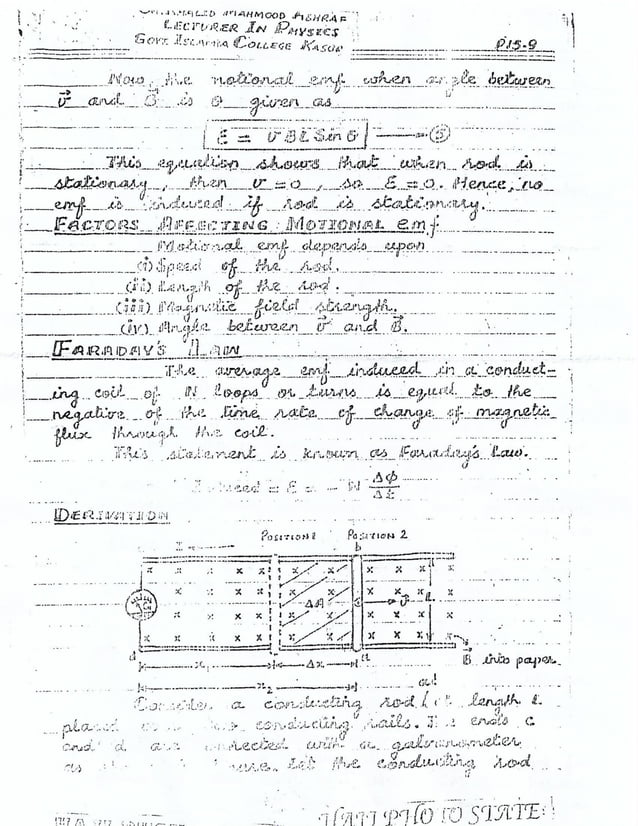 KHALID MAHMOOD ASHRAF
LECTURER IN PHYSICS
GOVT ISLAMIA COLLEGE KASUR
P15-9
Now, the motional emf when angle between
v⃗ and B⃗ is θ given as
ε = vBL Sin θ ⑤
This equation shows that when rod is
stationary, then v = 0, so ε = 0. Hence, no
emf is induced if rod is stationary.
FACTORS AFFECTING MOTIONAL emf
Motional emf depends upon
(i) Speed of the rod.
(ii) Length of the rod.
(iii) Magnetic field strength.
(iv) Angle between v⃗ and B⃗.
FARADAY'S LAW
The average emf induced in a conduct-
ing coil of N loops or turns is equal to the
negative of the time rate of change of magnetic
flux through the coil.
This statement is known as Faraday's Law.
= ε = - N Δφ/Δt
DERIVATION
POSITION 1 POSITION 2
I b
ΔA c v⃗ L
d a
x₁ Δx B⃗ into paper
x₂
Consider a conducting rod of length L
placed conducting rails. The ends c
and d are connected with a galvanometer
as Let the conducting rod
HAJI PHOTO STATE